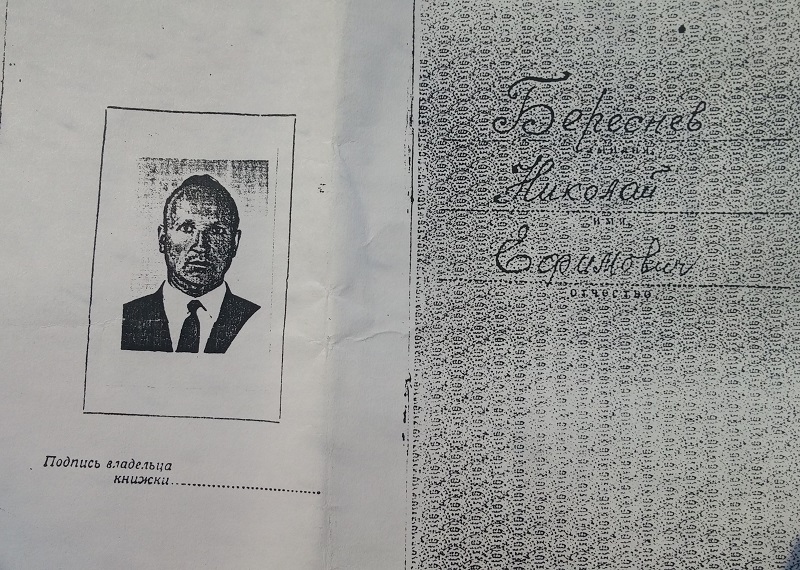 Подпись владельца
книжки
Береснев
Николай
Ефимович
отчество